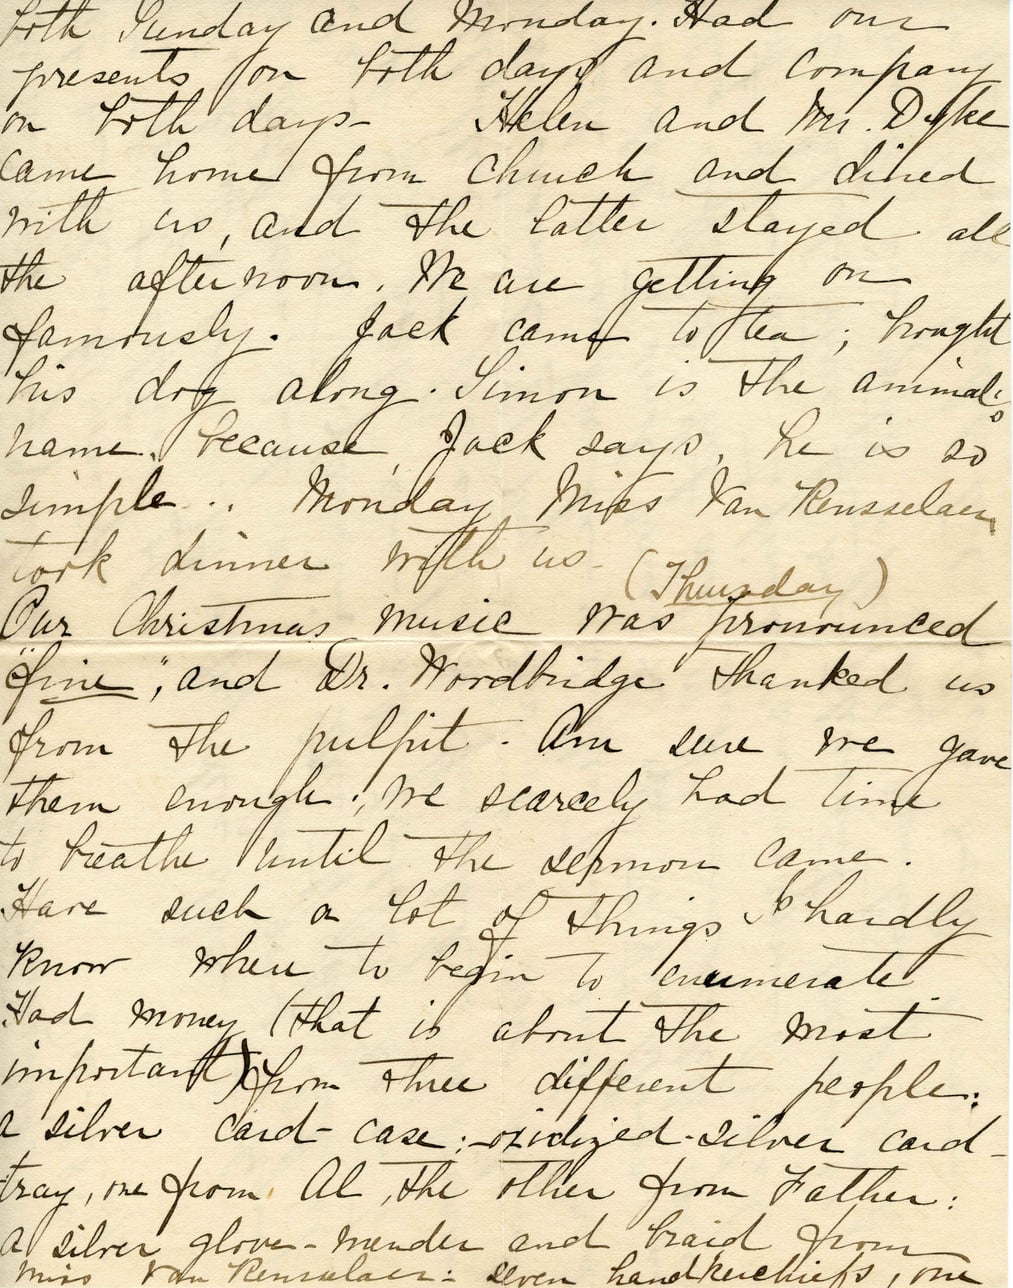 both Sunday and Monday. Had our
presents on both days and company
on both days- Helen and Mr. Dyke
came home from church and dined
with us, and the latter stayed all
the afternoon. We are getting on
famously. Jack came to tea; brought
his dog along. Simon is the animal's
name, because, Jack says, he is so
simple... Monday Miss Van Rensselaer
took dinner with us-
(Thursday)
Our Christmas music was pronounced
"fine", and Dr. Woodbridge thanked us
from the pulpit. Am sure we gave
them enough; we scarcely had time
to breathe until the sermon came.
Have such a lot of things I hardly
know where to begin to enumerate
Had money (that is about the most
important) from three different people:
a silver card-case; oxidized-silver card-
tray, one from Al, the other from Father:
a silver glove-mender and braid from
Miss Van Rensselaer: seven handkerchiefs, one